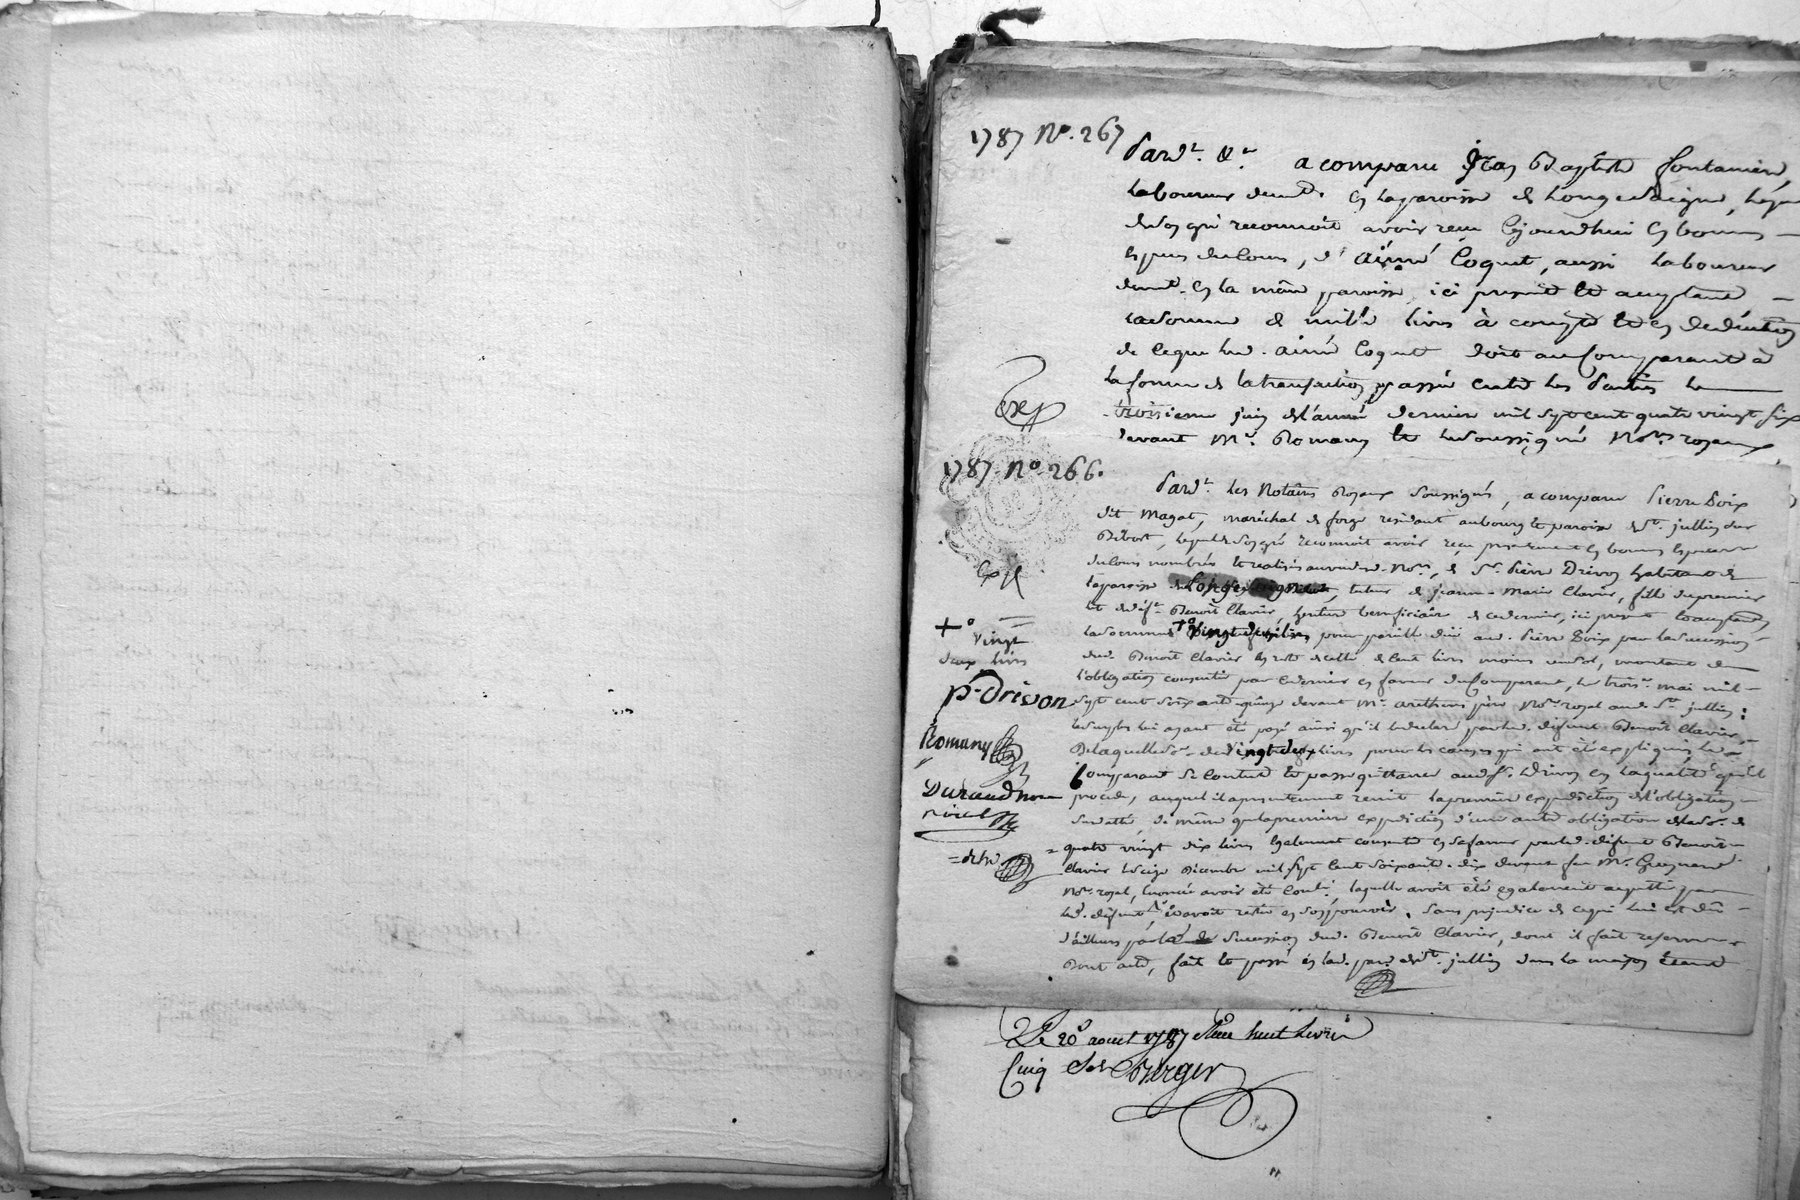 1787 No. 267
Pardt. &a. a comparu Jean Baptiste fontanier,
laboureur demt. en la paroisse de Longessaigne, lequel
de son gré reconnoit avoir reçu ce jourdhui en bonnes
espèces de cours, d'aimé Coquet, aussi laboureur
demt. en la même paroisse, ici présent et acceptant
la somme de mille livres à compte et en déduction
de ce que led. aimé Coquet doit au comparant à
la forme de la transaction passée entre les parties le
troisieme juin de l'année dernière mil sept cent quatre vingt six
devant Me. Romany et le soussigné Nores. royaux
exp
1787. No. 266.
Pardt. les Notaires Royaux soussignés, a comparu Pierre Poix
dit Magat, maréchal de forge résidant au bourg et paroisse de St. jullien sur
Bibost, lequel de son gré reconnoit avoir reçu présentement en bonnes espèces
de cours nombrées et réalisées au vu des d. Nores, de Sr. Pierre Drivon habitant de
la paroisse de Longessaigne, tuteur de jeanne-Marie Clavier, fille du premier
lit de déft. Benoît Clavier, héritier bénéficiaire de ce dernier, ici présent et acceptant,
la somme +° vingt deux livres, pour pareille due aud. Pierre Poix par la succession
dud. Benoît Clavier en reste de celle de cent livres moins un sol, montant de
l'obligation consentie par ce dernier en faveur du comparant, le trois. mai mil
sept cent soixante-quinze devant Me. arethens père Nore. royal aud. St. jullien;
le surplus lui ayant été payé ainsi qu'il le déclare par led. défunt Benoît Clavier,
De laquelle se. de vingt deux livres pour les causes qui ont été expliquées, le
Comparant se contente et passe quittance aud. Sr. Drivon en la qualité qu'il
procède, auquel il a présentement remit la première expédition de l'obligation
susdattée, de même que la première expédition d'une autre obligation de la so. de
quatre vingt dix livres également consentie en sa faveur par led. défunt Benoît
Clavier le seize Décembre mil sept cent soixante-dix devant feu Me. Guynand
Nore. royal, laquelle avoit été également acquittée par
led. défunt, et avoit resté en son pouvoir. Sans préjudice de ce qui lui est dû
d'ailleurs par la succession dud. Benoît Clavier, dont il fait réserve
Dont acte, fait et passé en lad. par. de St. jullien dans la maison
exp
+° vingt
deux livres
p. Drivon
Romany
Durand nore
royal
Le 20 aout 1787 Reçu huit livres
Cinq sols Berger